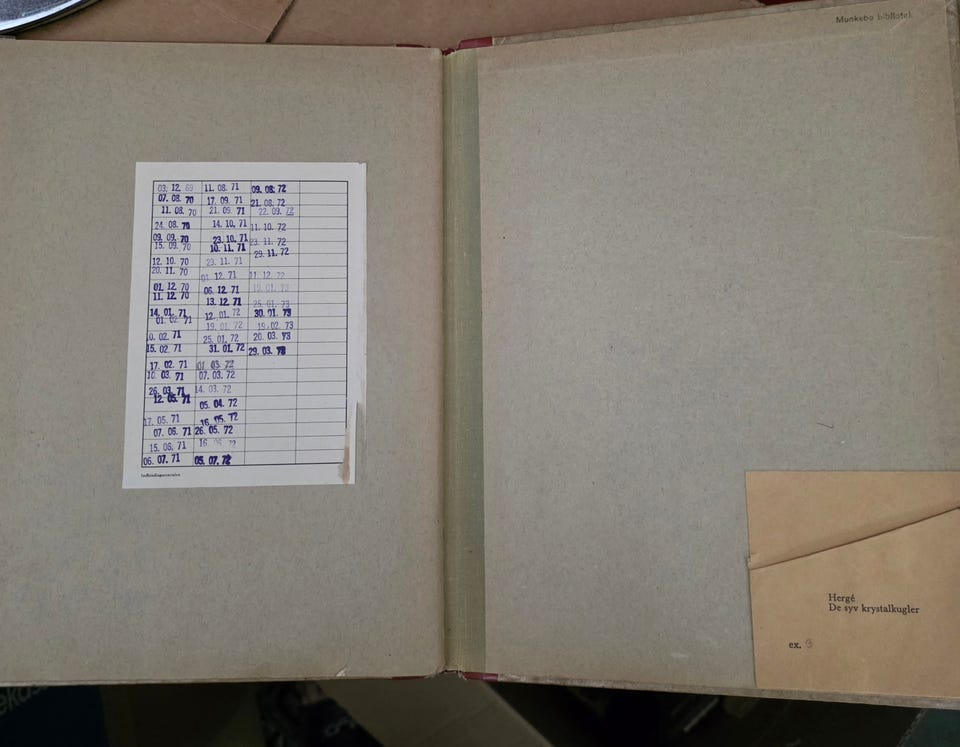 03. 12. 69
07. 08. 70
11. 08. 70
24. 08. 70
09. 09. 70
15. 09. 70
12. 10. 70
20. 11. 70
01. 12. 70
11. 12. 70
14. 01. 71
01. 02. 71
10. 02. 71
15. 02. 71
17. 02. 71
10. 03. 71
26. 03. 71
12. 05. 71
17. 05. 71
07. 06. 71
15. 06. 71
06. 07. 71
11. 08. 71
17. 09. 71
21. 09. 71
14. 10. 71
23. 10. 71
10. 11. 71
23. 11. 71
01. 12. 71
06. 12. 71
13. 12. 71
12. 01. 72
19. 01. 72
25. 01. 72
31. 01. 72
01. 03. 72
07. 03. 72
14. 03. 72
05. 04. 72
16. 05. 72
26. 05. 72
05. 07. 72
09. 08. 72
21. 08. 72
22. 09. 72
11. 10. 72
23. 11. 72
29. 11. 72
11. 12. 72
25. 01. 73
30. 01. 73
19. 02. 73
20. 03. 73
29. 03. 73
Indbindingscentralen
Munkebo bibliotek
Hergé
De syv krystalkugler
ex.